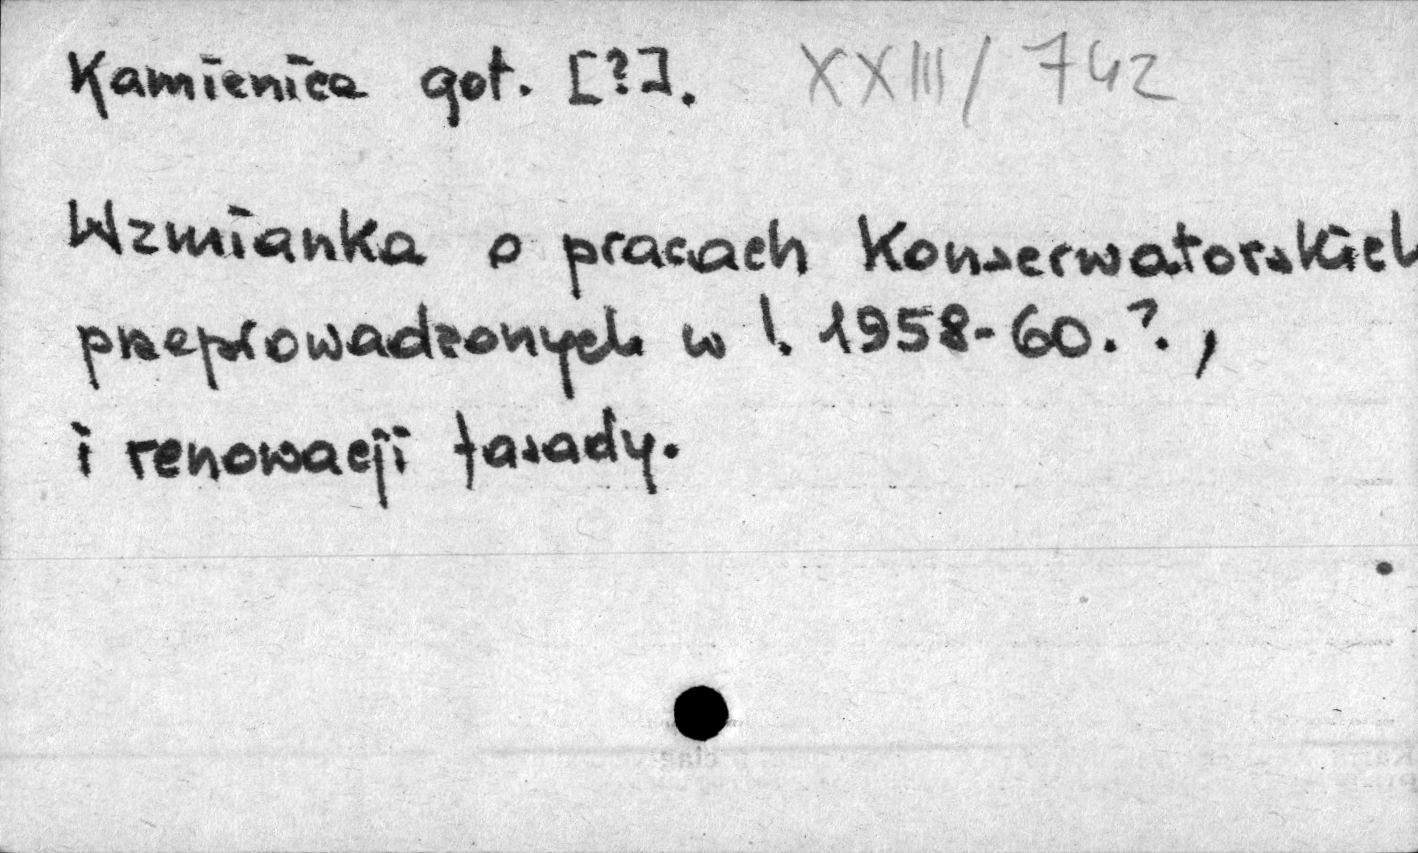 Kamienica got. [?]. XXIII/742
Wzmianka o pracach Konserwatorskich
przeprowadzonych w l. 1958-60.?.,
i renowacji fasady.